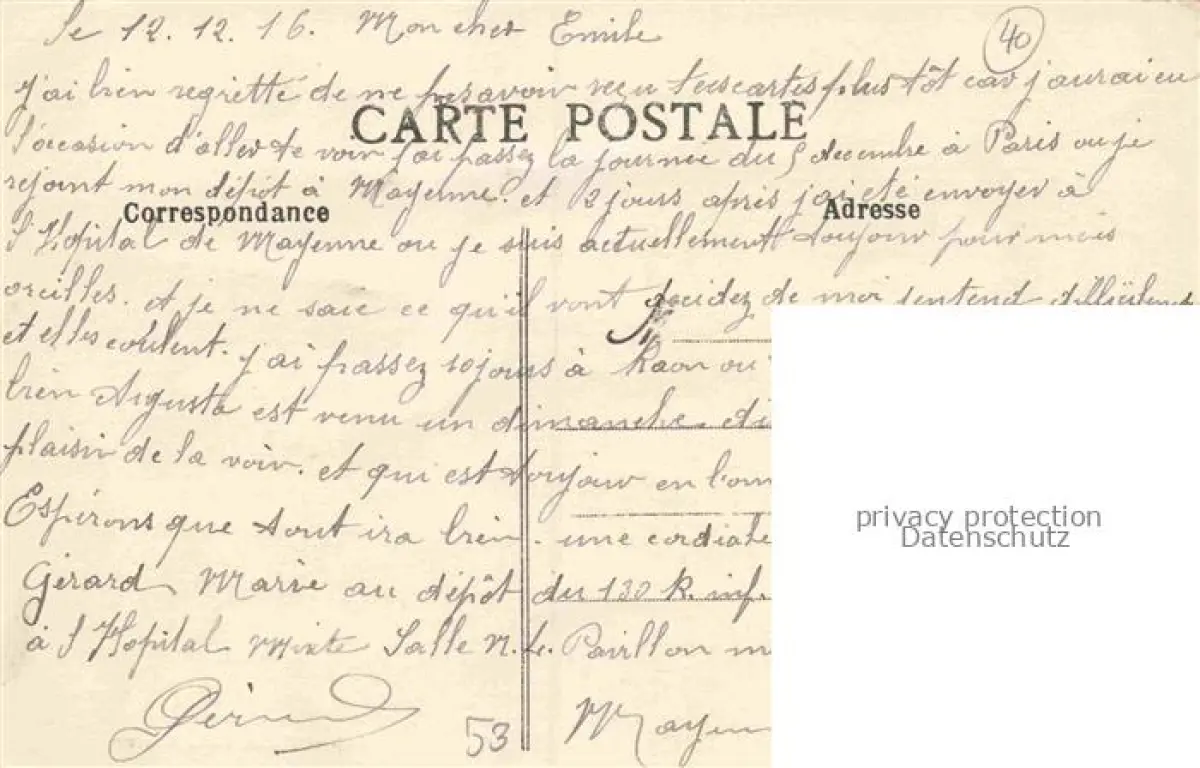 Le 12.12.16. Mon cher Emile
40
J'ai bien regretté de ne pas avoir reçu tes cartes plus tôt car j'aurai eu
CARTE POSTALE
l'occasion d'aller te voir j'ai passez la journée du 5 decembre à Paris ou je
rejoint mon dépôt à Mayenne. et 2 jours après j'ai été envoyer à
Correspondance
Adresse
l'Hopital de Mayenne ou je suis actuellement toujour pour mais
oreilles. et je ne saie ce qu'il vont decidez de moi j'entend
et elles coulent. j'ai passez 10 jours à Raon ou
bien Augusta est venu un dimanche.
plaisir de la voir. et qui est toujour en
Espérons que tout ira bien. une cordiale
privacy protection
Datenschutz
Gérard Marie au dépôt du 130 R. inf.
à l'Hopital Mixte Salle N. 4. Pavillon
Gérard
53